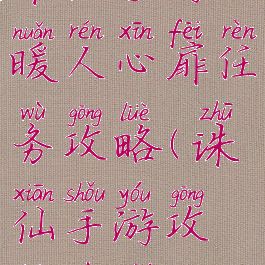 nuǎn rén xīn fēi rèn
暖人心扉任
wù gòng lüè zhū
务攻略(诛
xiān shǒu yóu gòng
仙手游攻